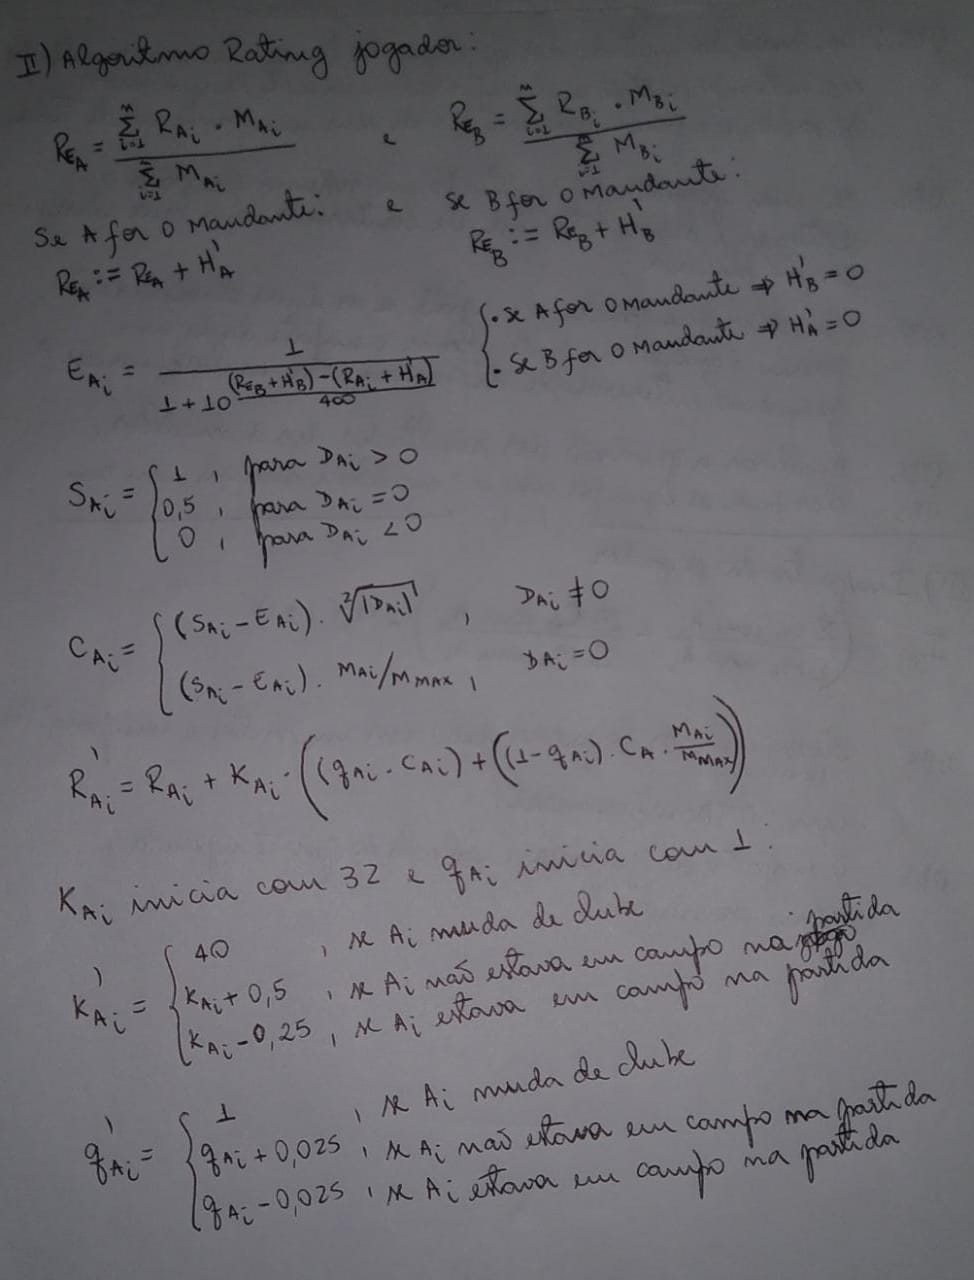 II) Algoritmo Rating jogador:
R_{E_A} = \frac{\sum_{i=1}^{n} R_{A_i} \cdot M_{A_i}}{\sum_{i=1}^{n} M_{A_i}} e R_{E_B} = \frac{\sum_{i=1}^{n} R_{B_i} \cdot M_{B_i}}{\sum_{i=1}^{n} M_{B_i}}
Se A for o mandante: e se B for o mandante:
R_{E_A} := R_{E_A} + H'_A R_{E_B} := R_{E_B} + H'_B
E_{A_i} = \frac{1}{1 + 10^{\frac{(R_{E_B} + H'_B) - (R_{A_i} + H'_A)}{400}}}
{ . se A for o mandante ⇒ H'_B = 0
. se B for o mandante ⇒ H'_A = 0
S_{A_i} = { 1 , para D_{A_i} > 0
0,5 , para D_{A_i} = 0
0 , para D_{A_i} < 0
C_{A_i} = { (S_{A_i} - E_{A_i}) . \sqrt[2]{|D_{A_i}|} , D_{A_i} ≠ 0
(S_{A_i} - E_{A_i}) . M_{A_i}/M_{MAX} , D_{A_i} = 0
R'_{A_i} = R_{A_i} + K_{A_i} . ((q_{A_i} . C_{A_i}) + ((1 - q_{A_i}) . C_A . \frac{M_{A_i}}{M_{MAX}}))
K_{A_i} inicia com 32 e q_{A_i} inicia com 1.
K'_{A_i} = { 40 , se A_i muda de clube
K_{A_i} + 0,5 , se A_i não estava em campo na partida
K_{A_i} - 0,25 , se A_i estava em campo na partida
q'_{A_i} = { 1 , se A_i muda de clube
q_{A_i} + 0,025 , se A_i não estava em campo na partida
q_{A_i} - 0,025 , se A_i estava em campo na partida